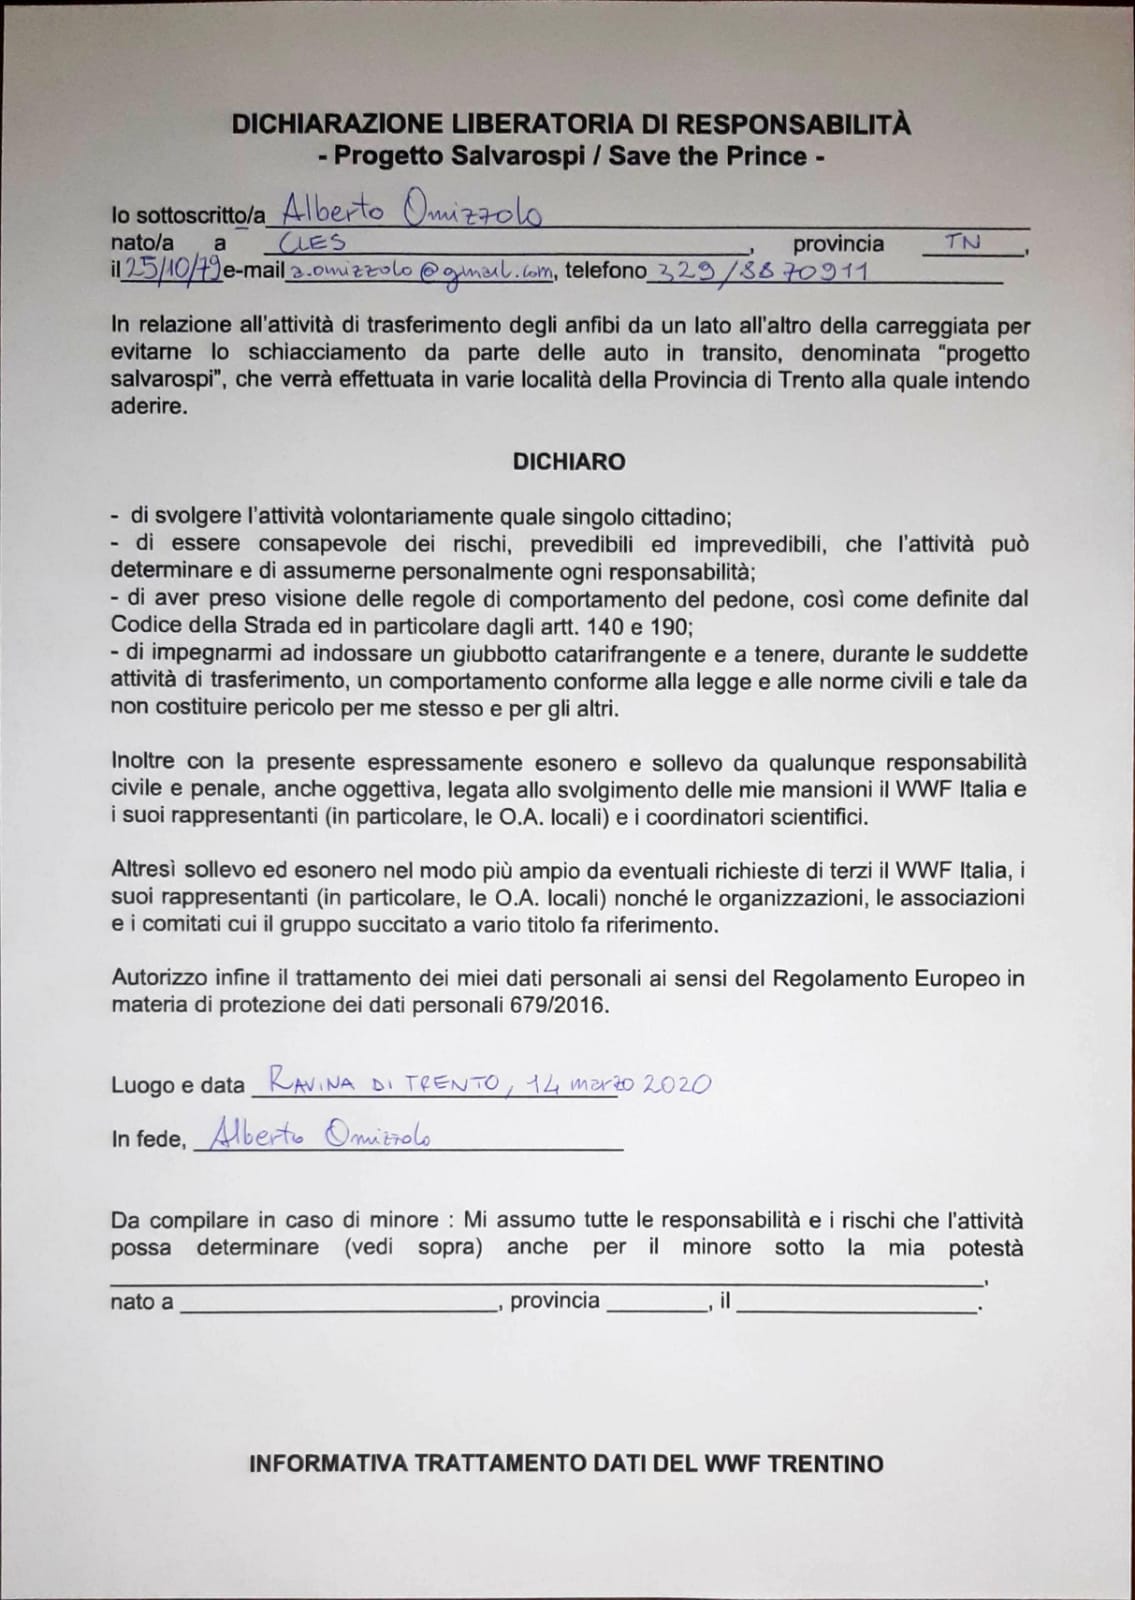 DICHIARAZIONE LIBERATORIA DI RESPONSABILITÀ
- Progetto Salvarospi / Save the Prince -
Io sottoscritto/a Alberto Omizzolo
nato/a a CLES, provincia TN,
il 25/10/79 e-mail a.omizzolo@gmail.com, telefono 329/8870911
In relazione all'attività di trasferimento degli anfibi da un lato all'altro della carreggiata per
evitarne lo schiacciamento da parte delle auto in transito, denominata "progetto
salvarospi", che verrà effettuata in varie località della Provincia di Trento alla quale intendo
aderire.
DICHIARO
- di svolgere l'attività volontariamente quale singolo cittadino;
- di essere consapevole dei rischi, prevedibili ed imprevedibili, che l'attività può
determinare e di assumerne personalmente ogni responsabilità;
- di aver preso visione delle regole di comportamento del pedone, così come definite dal
Codice della Strada ed in particolare dagli artt. 140 e 190;
- di impegnarmi ad indossare un giubbotto catarifrangente e a tenere, durante le suddette
attività di trasferimento, un comportamento conforme alla legge e alle norme civili e tale da
non costituire pericolo per me stesso e per gli altri.
Inoltre con la presente espressamente esonero e sollevo da qualunque responsabilità
civile e penale, anche oggettiva, legata allo svolgimento delle mie mansioni il WWF Italia e
i suoi rappresentanti (in particolare, le O.A. locali) e i coordinatori scientifici.
Altresì sollevo ed esonero nel modo più ampio da eventuali richieste di terzi il WWF Italia, i
suoi rappresentanti (in particolare, le O.A. locali) nonché le organizzazioni, le associazioni
e i comitati cui il gruppo succitato a vario titolo fa riferimento.
Autorizzo infine il trattamento dei miei dati personali ai sensi del Regolamento Europeo in
materia di protezione dei dati personali 679/2016.
Luogo e data RAVINA DI TRENTO, 14 marzo 2020
In fede, Alberto Omizzolo
Da compilare in caso di minore : Mi assumo tutte le responsabilità e i rischi che l'attività
possa determinare (vedi sopra) anche per il minore sotto la mia potestà
,
nato a , provincia , il .
INFORMATIVA TRATTAMENTO DATI DEL WWF TRENTINO